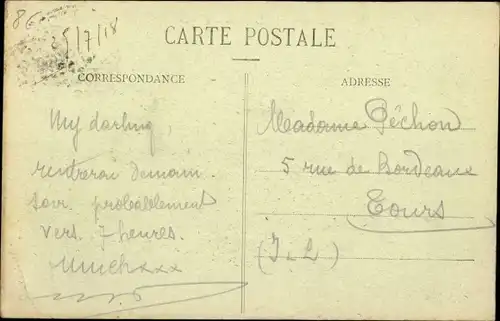 25/7/18
CARTE POSTALE
CORRESPONDANCE
ADRESSE
My darling,
rentrerai demain
soir probablement
vers 7 heures.
Much xxx
Madame Péchon
5 rue de Bordeaux
Tours
(I-L)